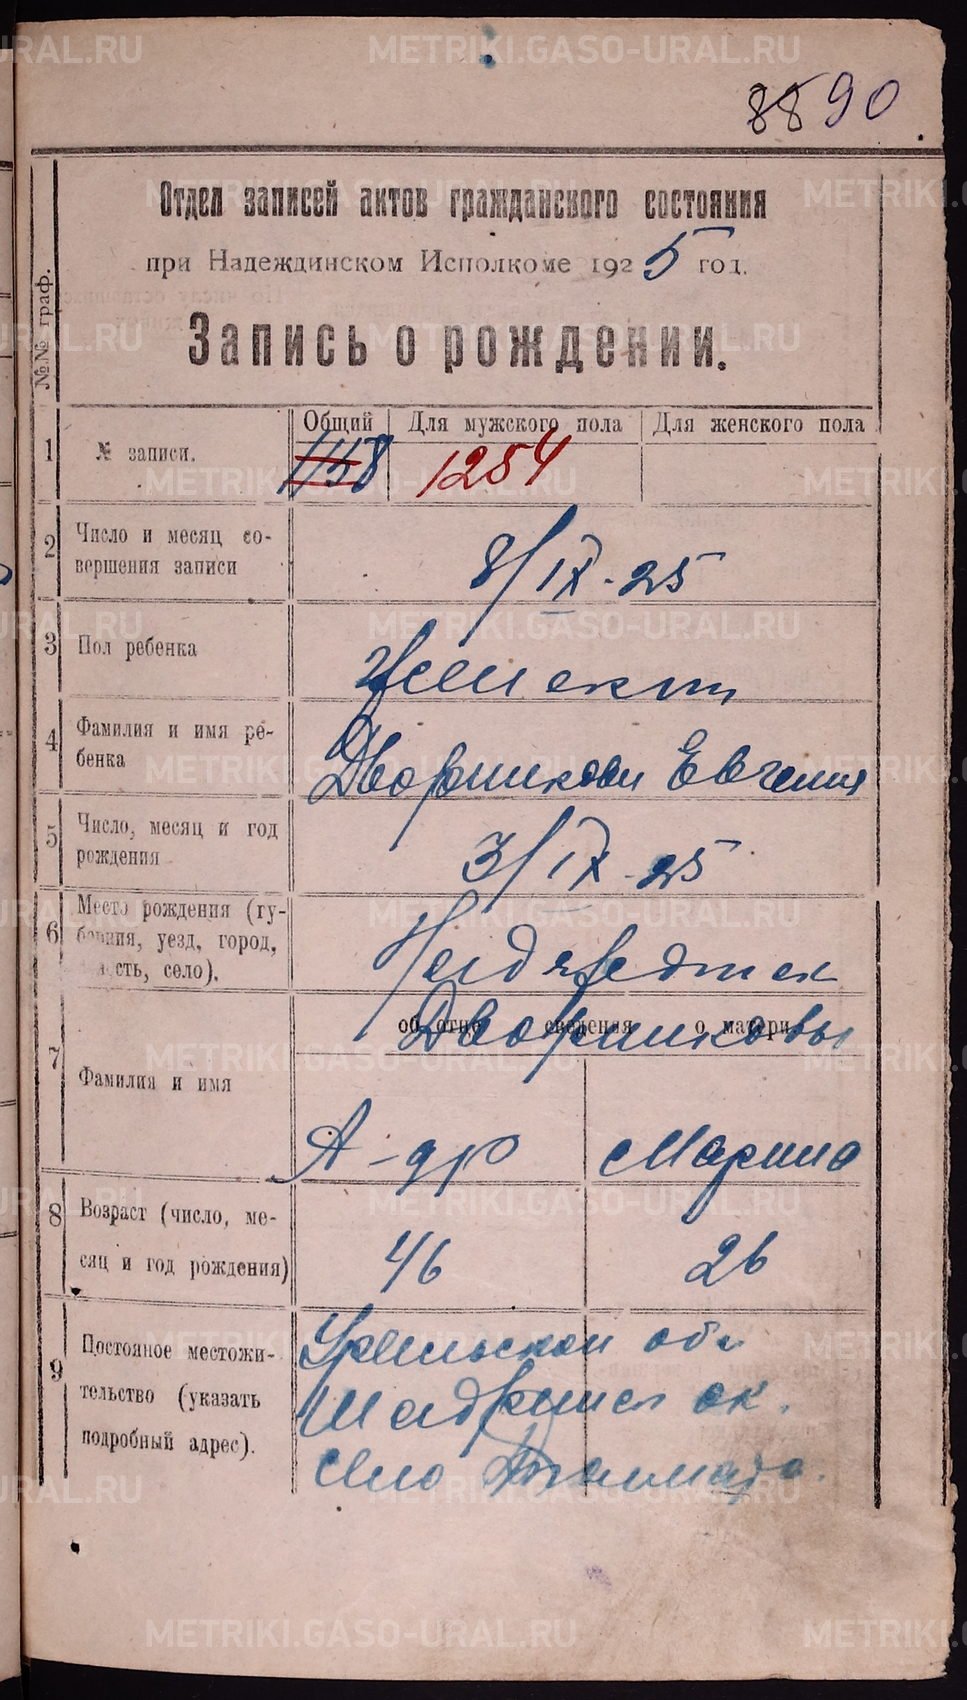 8890
Отдел записей актов гражданского состояния
при Надеждинском Исполкоме 1925 год.
Запись о рождении.
№№ граф.
1 № записи. Общий Для мужского пола Для женского пола
1158 1254
2 Число и месяц со-
вершения записи
8/IX-25
3 Пол ребенка
Женский
4 Фамилия и имя ре-
бенка
Дворникова Евгения
5 Число, месяц и год
рождения
3/IX-25
6 Место рождения (гу-
берния, уезд, город,
волость, село).
Надеждинск
7 Фамилия и имя
об отце сведения о матери
Дворниковы
А-др Марина
8 Возраст (число, ме-
сяц и год рождения)
46 26
9 Постояное местожи-
тельство (указать
подробный адрес).
Уральской обл
Шадринск ок.
село
METRIKI.GASO-URAL.RU